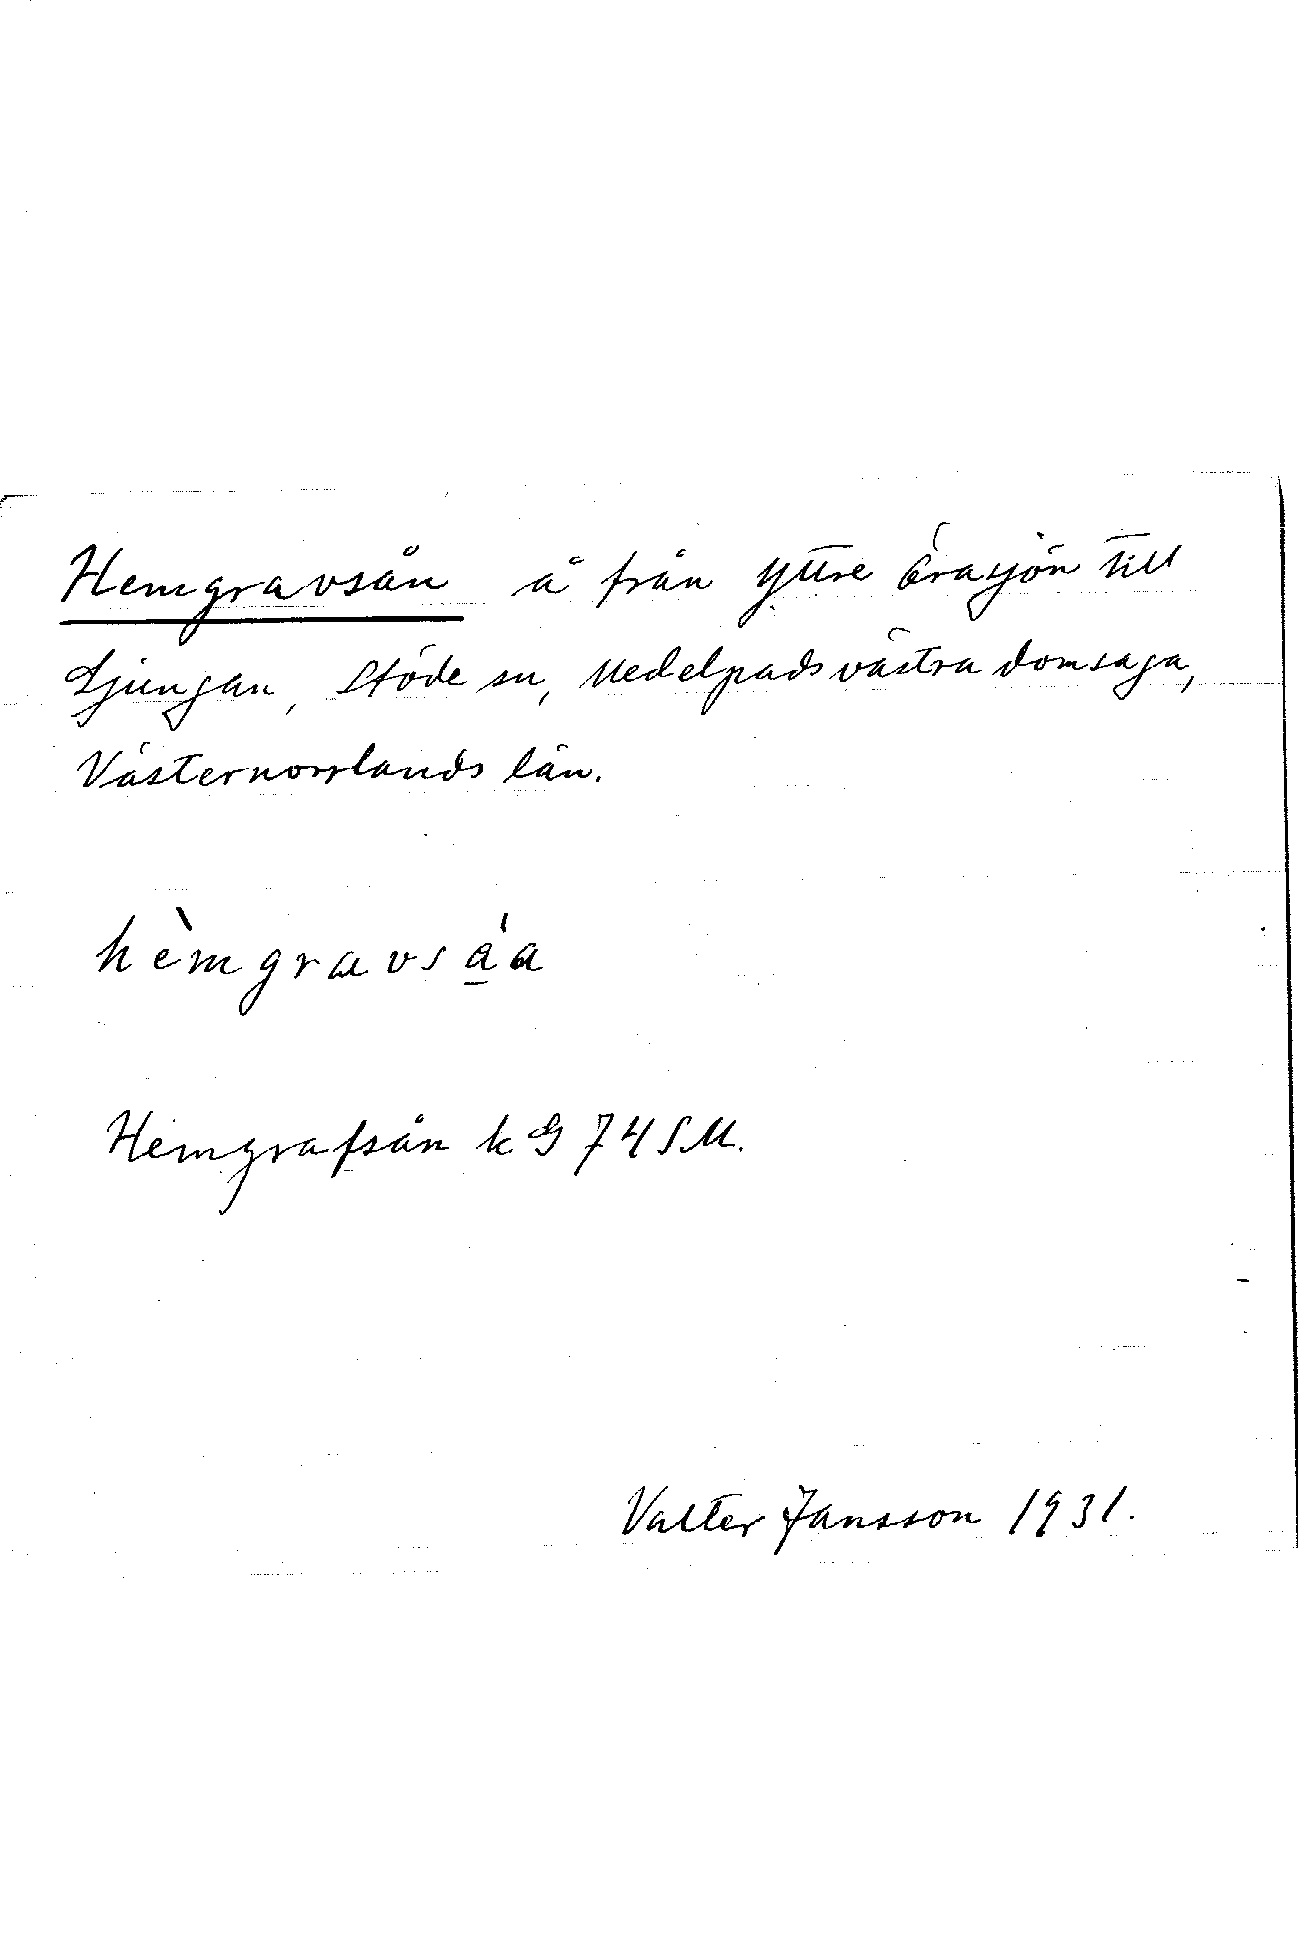 Hemgravsån å från Yttre Örasjön till
Ljungan, Stöde sn, Medelpads västra domsaga,
Västernorrlands län.
hèmgravsá̱a
Hemgrafsån kG 74 SM.
Valter Jansson 1931.